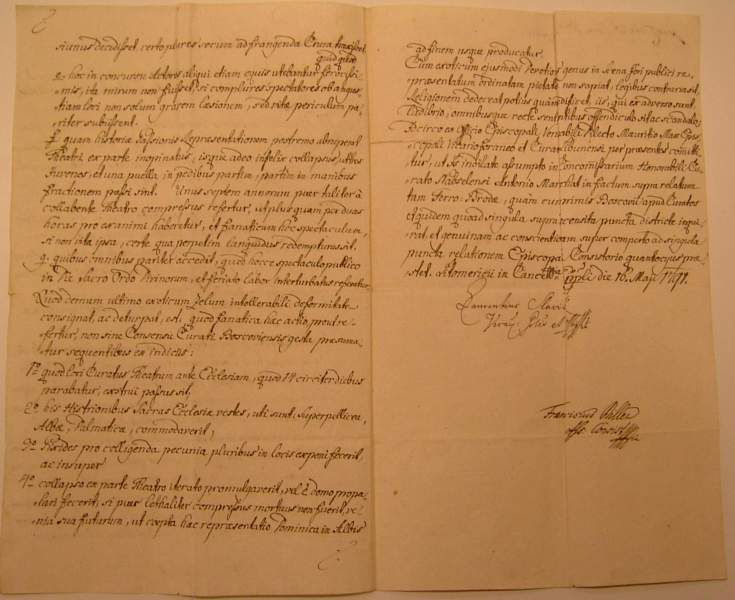 si unus decidisset, certo plures secum ad frangenda Crura traxisset.
quid quod
e. hoc in concursu Actores aliqui etiam equis utebantur ferocissi-
mis, ita mirum non fuisset, si complures spectatores ob angus-
tiam loci non solum gravem laesionem, sed vitae periculum pa-
riter subiissent.
f. quam historiae Passionis Repraesentationem postremo abruperat
Theatri ex parte inopinatus, isque adeo infelix collapsus, ut tres
Juvenes, et una puella in pedibus partim, partim in manibus
fractionem passi sint. Unus septem annorum puer taliter à
collabente Theatro compressus refertur, ut plus quam per duas
horas pro exanimi haberetur, et fanaticum hoc spectaculum,
si non vita ipsa, certe qua perpetim languidus redempturus sit.
g. quibus omnibus pariter accedit, quod hocce spectaculo publico
in Die Sacro Ordo Divinorum, et feriato labor interturbatus
Quod demum ultimo exoticum Zelum intollerabili deformitate
consignat, ac deturpat, est, quod fanatica haec actio prout re-
fertur, non sine Consensu Curati Boscoviensis gesta praesuma-
tur sequentibus ex indiciis:
1mo quod loci Curatus Theatrum ante Ecclesiam, quod 14 circiter diebus
parabatur, exstrui passus sit,
2do his Histrionibus Sacras Ecclesiae vestes, uti sunt, Superpellicea,
Albae, Dalmaticae, commodaverit,
3tio Pixides pro colligenda pecunia pluribus in locis exponi fecerit,
ac insuper
4to collapso ex parte Theatro iterato promulgaverit, vel è domo propa-
lari fecerit, si puer lethaliter compressus mortuus non fuerit, ve-
nia sua futurum, ut coepta haec repraesentatio Dominica in Albis
ad finem usque producatur.
Cum exoticum ejusmodi Devotionis genus in scena fori publici re-
praesentatum ordinatam pietatem non sapiat, legibus contrarium sit,
Religionem dedeceat potius quam edificet, iis, qui ex adverso sunt,
Theatro, omnibusque recte sentientibus offendiculo sit, ac scandalo,
Idcirco ex Officio Episcopali, Venerabili Dilecto Mauritio Max Epis-
copali Vicario foraneo et Curato praesentes commit-
titur, ut is indilate assumpto in Concommissarium Honorabili Cu-
rato Antonio Martslat in factum supra relatum
tam Ferro-Brodae, quam cum primis Boscovii apud Curatos
itidem quoad singula supra recensita puncta districte inqui-
rat, et genuinam ac conscientiam super comperto ad singula
puncta relationem Episcopali Consistorio quantocyus prae-
stet. Cancellaria Eppali die 18. Maji
Laurentius
Vicarius Glis et Offlis
Franciscus Müller